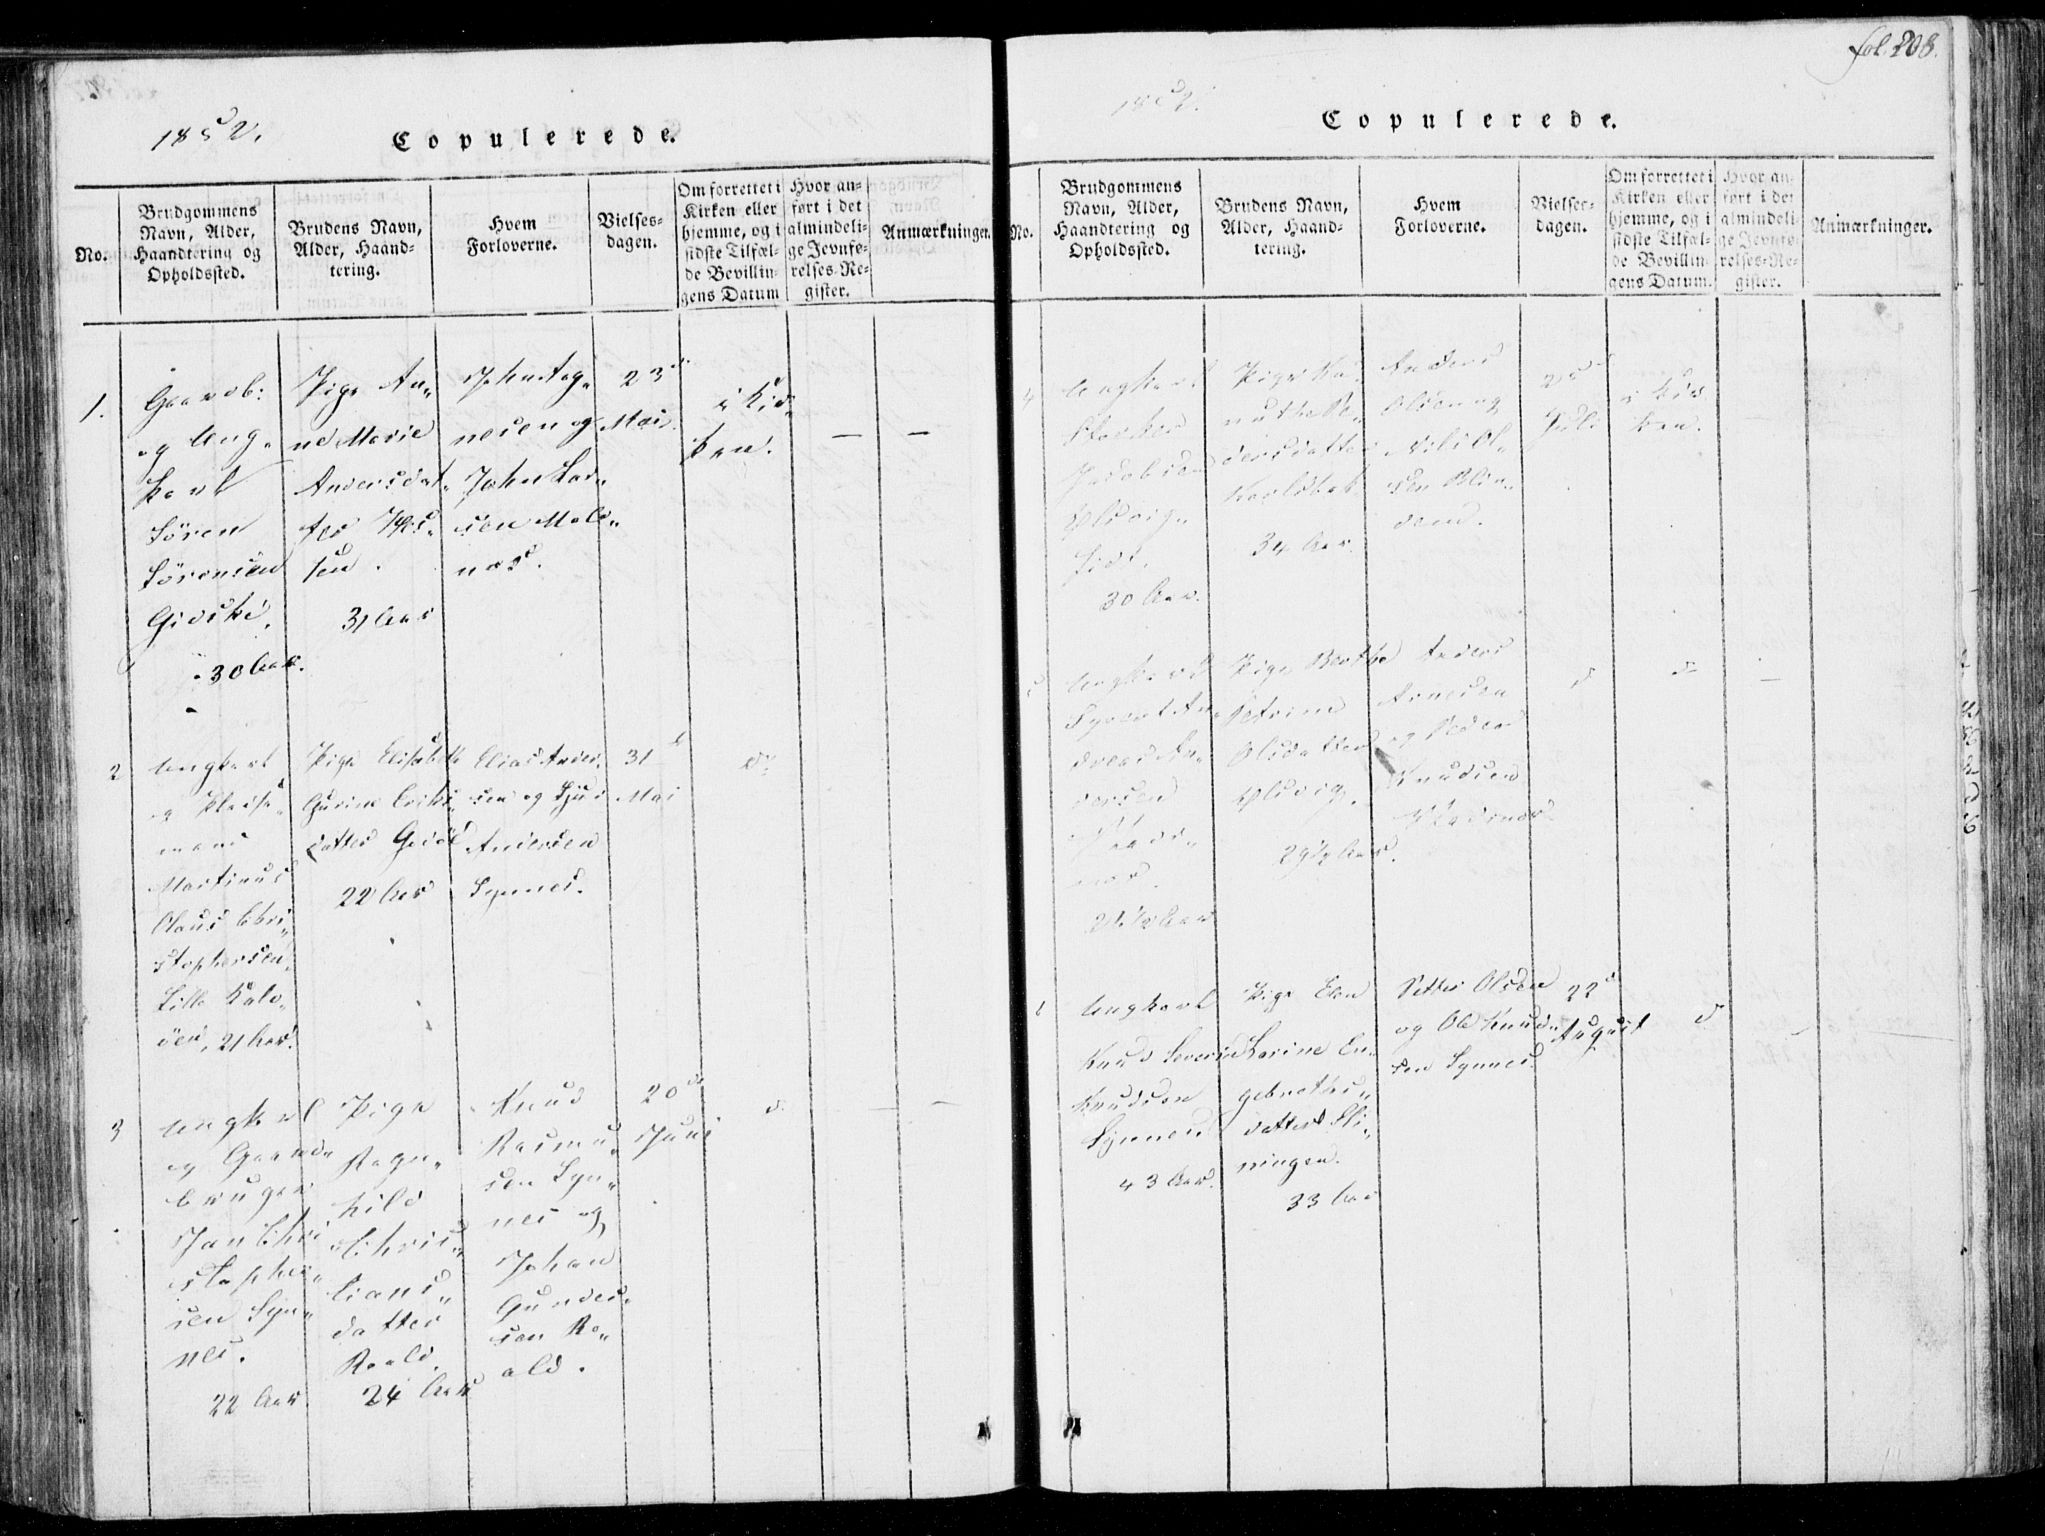 fol. 208.
1852.
Copulerede.
No.
Brudgommens
Navn, Alder,
Haandtering og
Opholdssted.
Brudens Navn,
Alder, Haand-
tering.
Hvem
Forloverne.
Vielses-
dagen.
Om forrettet i
Kirken eller
hjemme, og i
sidste Tilfæl-
de Bevillin-
gens Datum
Hvor an-
ført i det
almindeli-
ge Jevnfø-
relses-Re-
gister.
Anmærkninger.
1.
Gaardb:
og Ung-
karl
Sören
Sörensen
Gidské.
30 Aar.
Pige An-
ne Marie
Andersdat-
ter
31 Aar
John Aag-
nesen og
John Lar-
sen Mol-
næs.
23de
Mai.
i Kir-
ken.
— —
2
Ungkarl
og
mand
Martinus
Olaus Chri-
stophersen
Lille Kalv-
öen, 21 Aar.
Pige Elisabeth
Gurine Eriks-
datter Gidské
22 Aar
Elias Ander-
sen og Sjur
Andersen
Synnes.
31te
Mai
do
3
Ungkarl
og Gaard-
bruger
Jan Chri-
stopher-
sen Syn-
nes.
22 Aar
Pige
Ragn-
hild
Chris-
tians-
datter
Roald.
24 Aar
Knud
Rasmu-
sen Syn-
nes og
Johan
Gunder-
sen Ro-
ald.
20de
Juni
do
— —
1852.
Copulerede.
No.
Brudgommens
Navn, Alder,
Haandtering og
Opholdssted.
Brudens Navn,
Alder, Haand-
tering.
Hvem
Forloverne.
Vielses-
dagen.
Om forrettet i
Kirken eller
hjemme, og i
sidste Tilfæl-
de Bevillin-
gens Datum.
Hvor an-
ført i det
almindeli-
ge Jevnfø-
relses-Re-
gister.
Anmærkninger.
4
Ungkarl
Jacobsen
30 Aar.
Pige
dersdatter
34 Aar.
Anders
Olsen og
Nils Ol-
sen Blin-
dem.
25de
Juli
i Kir-
ken.
5
Ungkarl
Syvert An-
dreas An-
dersen
Pige Berthe
Petrine
Olsdatter
29 1/2 Aar.
Anders
Arnesen
og Peder
Knudsen
do
do
—
6
Ungkarl
Knud Severin
Knudsen
Synnes
43 Aar.
Pige Elen
Karine En-
gebrethş-
datter Sli-
ningen.
33 Aar
Petter Olsen
og Ole Knud-
sen Synnes.
22de
August
do
—